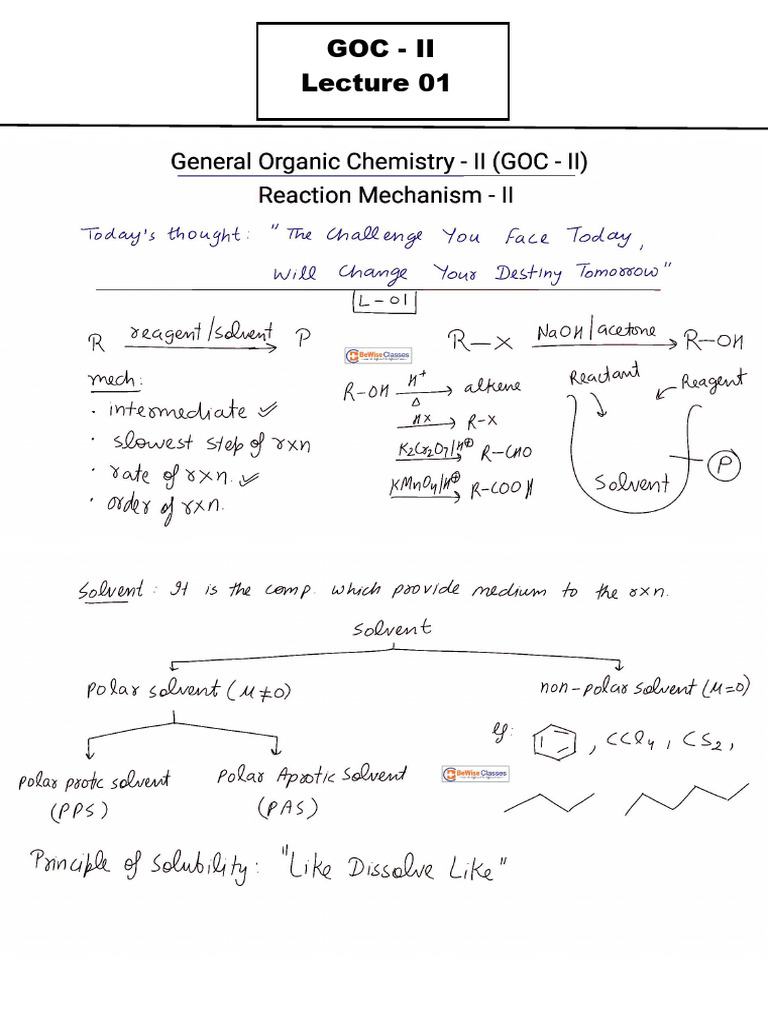 GOC - II
Lecture 01
General Organic Chemistry - II (GOC - II)
Reaction Mechanism - II
Today's thought: "The Challenge You Face Today,
Will Change Your Destiny Tomorrow"
L-01
R reagent/solvent P
BeWise Classes
R-X NaOH/acetone R-OH
mech:
· intermediate ✓
· slowest step of rxn
· rate of rxn. ✓
· order of rxn.
R-OH H+ Δ alkene
HX R-X
K2Cr2O7/H⊕ R-CHO
KMnO4/H⊕ R-COOH
Reactant Reagent
Solvent P
Solvent: It is the comp. which provide medium to the rxn.
Solvent
Polar solvent (μ≠0) non-polar solvent (μ=0)
eg: , CCl4, CS2,
polar protic solvent (PPS)
Polar Aprotic Solvent (PAS)
BeWise Classes
Principle of Solubility: "Like Dissolve Like"